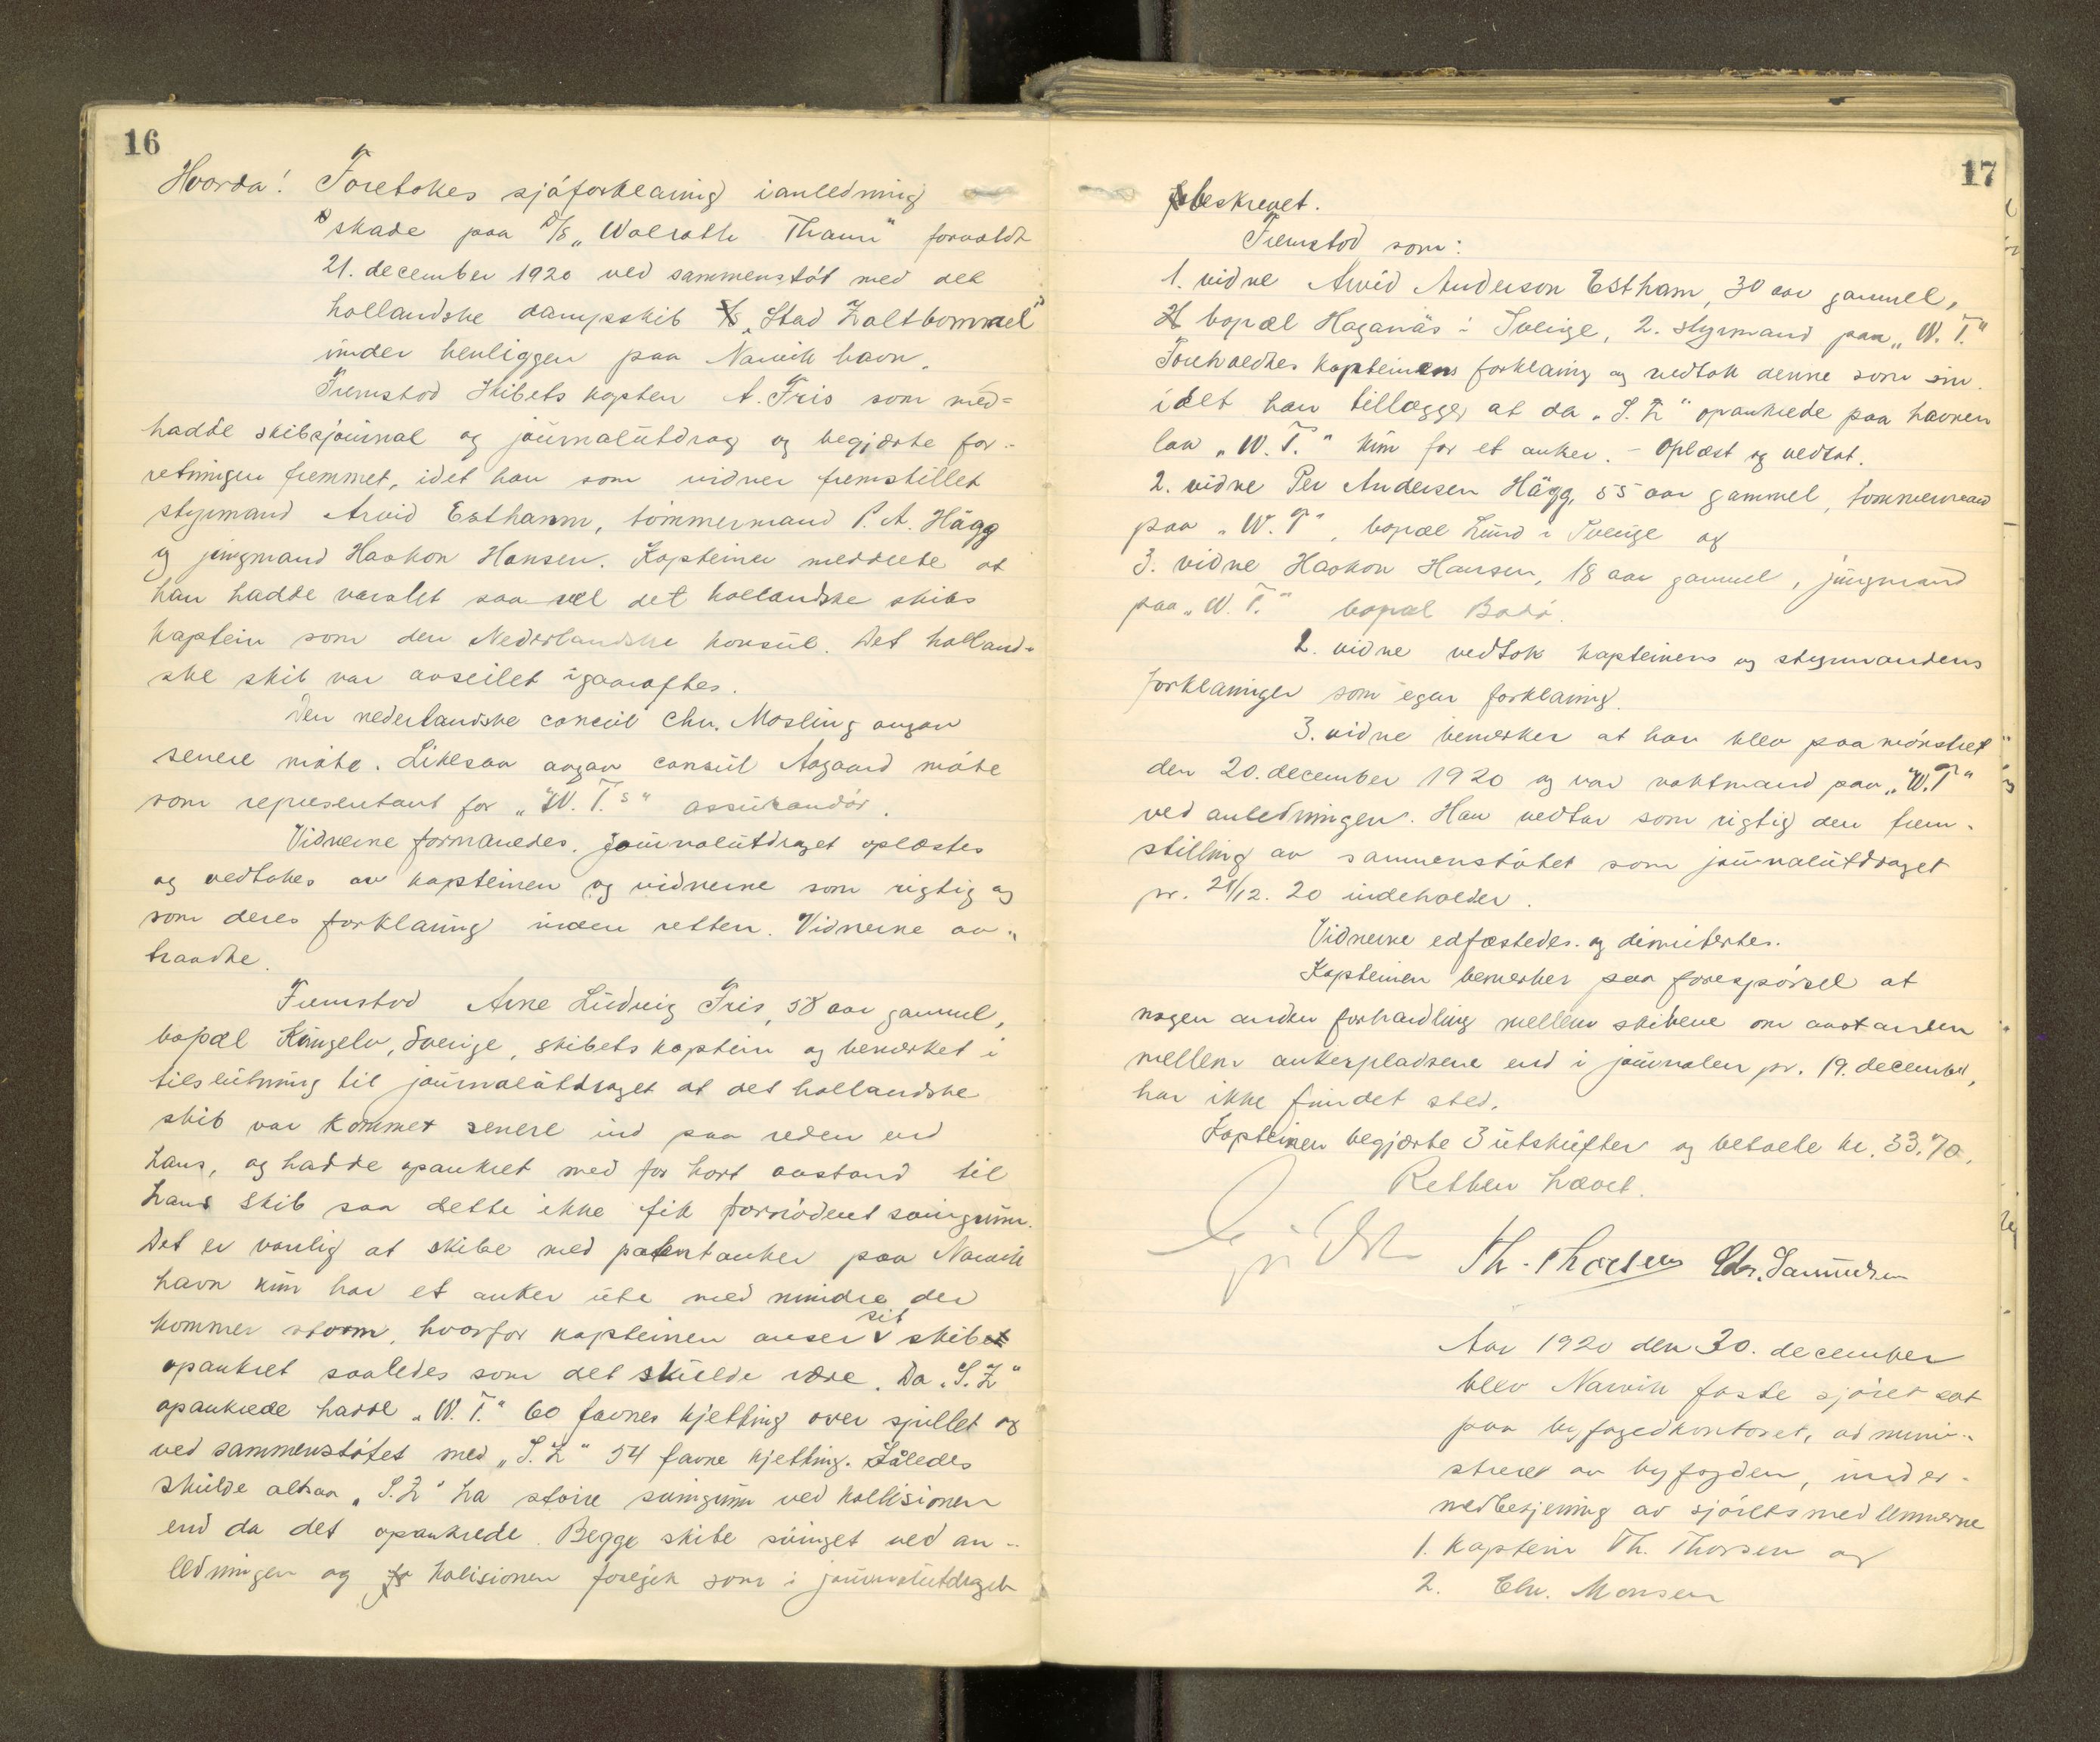 16
Hvorda! Foretokes sjøforklaring i anledning
skade paa D/S „Walrath Tham" forvoldt
21. december 1920 ved sammenstøt med det
hollandske dampskib „Stad Zaltbommel"
under henliggen paa Narvik havn.
Fremstod skibets kaptein A. Fris som med=
hadde skibsjournal og journalutdrag og begjærte for-
retningen fremmet, idet han som vidner fremstillet
styrmand Arvid Estham, tømmermand P. A. Hägg
og jungmand Haakon Hansen. Kapteinen meddeelte at
han hadde varslet saa vel det hollandske skibs
kaptein som den Nederlandske konsul. Det holland-
ske skib var avseilet igaaraftes.
Den nederlandske consul Chr. Mosling angav
senere møte. Likesaa angav consul Aagaard møte
som representant for „W. T.s" assurandør.
Vidnerne formanedes. Journalutdraget oplæstes
og vedtokes av kapteinen og vidnerne som rigtig og
som deres forklaring inden retten. Vidnerne av-
traadte.
Fremstod Arne Ludvig Fris, 58 aar gammel,
bopæl Kungelv, Sverige, skibets kaptein og bemerket i
tilslutning til journalutdraget at det hollandske
skib var kommet senere ind paa reden end
hans, og hadde opankret med for kort avstand til
hans skib saa dette ikke fik fornødent svingrum.
Det er vanlig at skibe med patentanker paa Narvik
havn kun har et anker ute med mindre der
kommer storm, hvorfor kapteinen anser sit skib
opankret saaledes som det skulde være. Da „S. Z"
opankrede hadde „W. T." 60 favnes kjetting over spillet og
ved sammenstøtet med „S. Z" 54 favne kjetting. Således
skulde altsaa „S. Z" ha større svingrum ved kollisionen
end da det opankrede. Begge skibe svinget ved an-
ledningen og kolisionen foregik som i journalutdraget
17
beskrevet.
Fremstod som:
1. vidne Arvid Anderson Estham, 30 aar gammel,
bopæl Haganäs i Sverige, 2. styrmand paa „W. T."
Foreholdtes kapteinens forklaring og vedtok denne som sin.
idet han tillægger at da „S. Z" opankrede paa havnen
laa „W. T." kun for et anker. - Oplæst og vedtat.
2. vidne Per Andersen Hägg, 55 aar gammel, tømmermand
paa „W. T", bopæl Lund i Sverige og
3. vidne Haakon Hansen, 18 aar gammel, jungmand
paa „W. T." bopæl Bodø.
2. vidne vedtok kapteinens og styrmandens
forklaringer som egen forklaring.
3. vidne bemerker at han blev paamønstret
den 20. december 1920 og var vaktmand paa „W. T"
ved anledningen. Han vedtar som rigtig den frem-
stilling av sammenstøtet som journalutdraget
pr. 21/12. 20 indeholder.
Vidnerne edfæstedes. og dimitertes.
Kapteinen bemerker paa forespørsel at
nogen anden forhandling mellem skibene om avstanden
mellem ankerpladsene end i journalen pr. 19. december,
har ikke fundet sted.
Kapteinen begjærte 3 utskrifter og betalte kr. 33.70.
Retten hævet.
Th. Thorsen Chr. Samuelsen
Aar 1920 den 30. december
blev Narvik faste sjøret sat
paa byfogedkontoret, admini-
streret av byfogden, under
medbetjening av sjøretsmedlemmerne
1. Kaptein Th. Thorsen og
2. Chr. Monsen